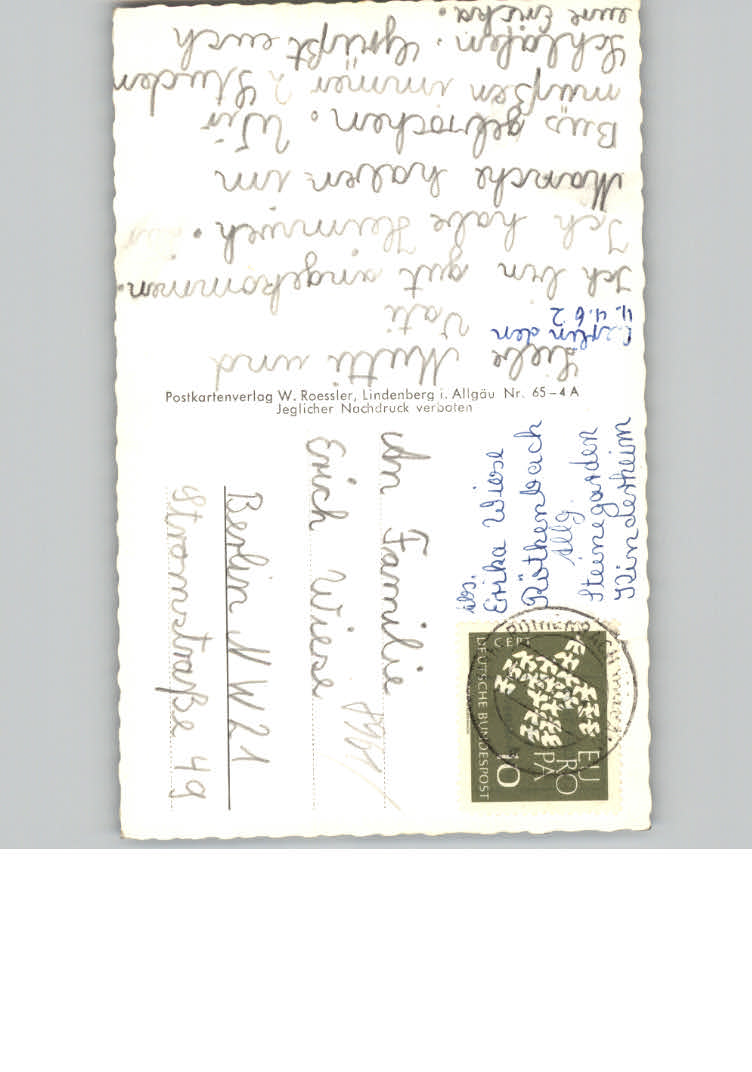 Berlin den
11.4.62
Liebe Mutti und
Vati
Ich bin gut angekommen.
Ich habe Heimweh.
Manche haben im
Büs gebrochen. Wir
müßen immer 2 Stunden
Schlafen. Grüßt euch
eure Ericka.
Postkartenverlag W. Roessler, Lindenberg i. Allgäu Nr. 65-4 A
Jeglicher Nachdruck verboten
Abs.
Erika Wiese
Röthenbach
Allg.
Steinegarden
Kinderheim
CEPT
DEUTSCHE BUNDESPOST
EU
RO
PA
10
An Familie
Erich Wiese
Berlin NW21
Stromstraße 49